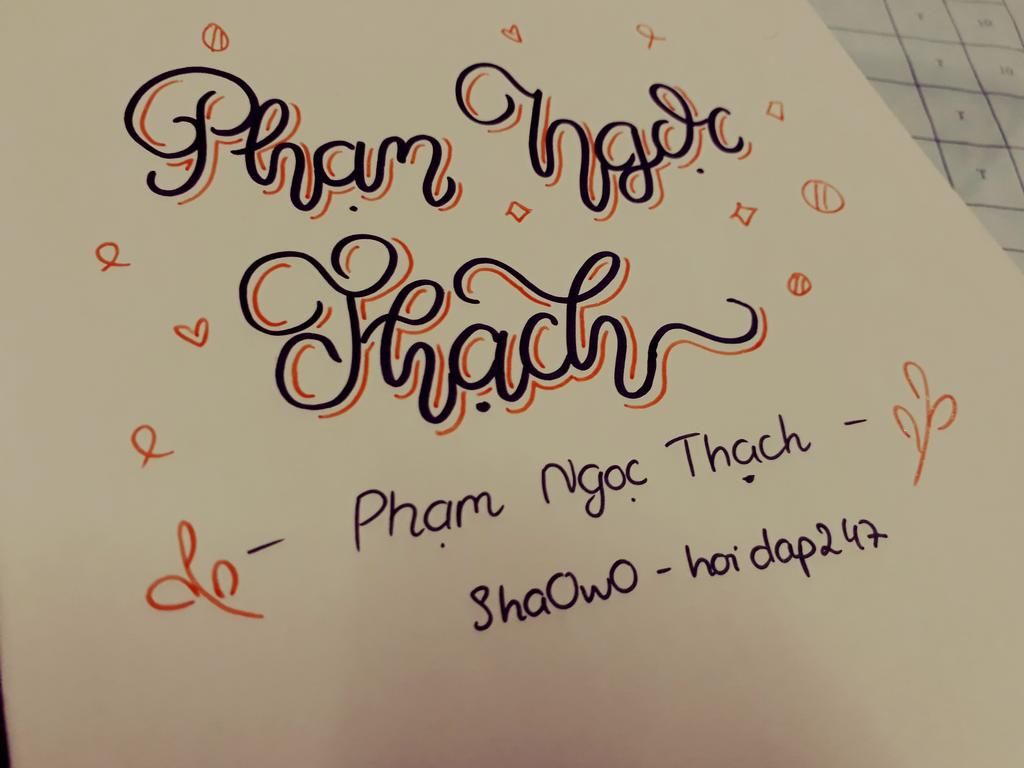 Phạm Ngọc
Thạch
- Phạm Ngọc Thạch -
ShaOwO - hoidap247